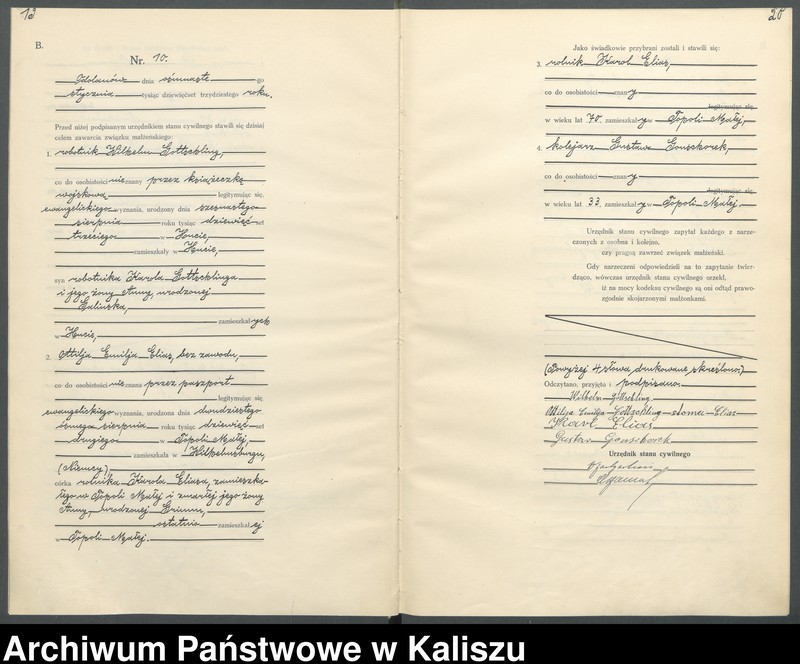 19
B.
Nr. 10.
Odolanów dnia ósmnaste go
stycznia tysiąc dziewięćset trzydziestego roku.
Przed niżej podpisanym urzędnikiem stanu cywilnego stawili się dzisiaj
celem zawarcia związku małżeńskiego:
1. robotnik Wilhelm Gottschling,
co do osobistości nieznany przez książeczkę
wojskową legitymując się,
ewangelickiego wyznania, urodzony dnia szesnastego
sierpnia roku tysiąc dziewięć set
trzeciego w Hucie,
zamieszkały w Hucie,
syn robotnika Karola Gottschlinga
i jego żony Anny, urodzonej
Galinska,
zamieszkałych
w Hucie,
2. Ottilja Emilja Elias, bez zawodu,
co do osobistości nieznana przez paszport
legitymując się,
ewangelickiego wyznania, urodzona dnia dwudziestego
ósmego sierpnia roku tysiąc dziewięć set
drugiego w Topoli Małej,
zamieszkała w Wilhelmsburgu,
(Niemcy)
córka rolnika Karola Eliasa, zamieszka-
łego w Topoli Małej i zmarłej jego żony
Anny, urodzonej
ostatnio zamieszkałej
w Topoli Małej.
20
Jako świadkowie przybrani zostali i stawili się:
3. rolnik Karol Elias,
co do osobistości znany
legitymując się,
w wieku lat 70 zamieszkały w Topoli Małej,
4. kolejarz Gustaw Gonschorek,
co do osobistości znany
legitymując się,
w wieku lat 33 zamieszkały w Topoli Małej.
Urzędnik stanu cywilnego zapytał każdego z narze-
czonych z osobna i kolejno,
czy pragną zawrzeć związek małżeński.
Gdy narzeczeni odpowiedzieli na to zapytanie twier-
dząco, wówczas urzędnik stanu cywilnego orzekł,
iż na mocy kodeksu cywilnego są oni odtąd prawo-
zgodnie skojarzonymi małżonkami.
(Powyżej 4 słowa drukowane skreślono.)
Odczytano, przyjęto i podpisano:
Wilhelm Gottschling
Ottilja Emilja Gottschling doma Elias
Karl Elias
Gustav Gonschorek
Urzędnik stanu cywilnego
Archiwum Państwowe w Kaliszu